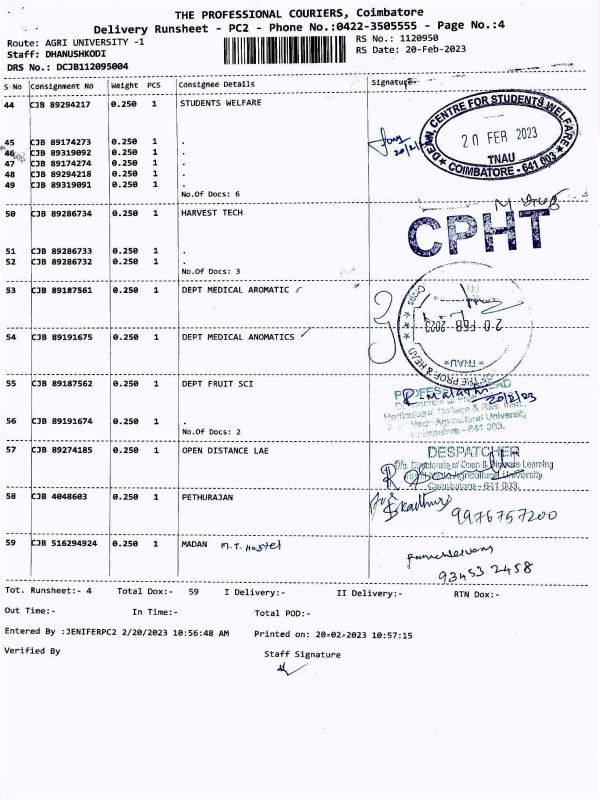 THE PROFESSIONAL COURIERS, Coimbatore
Delivery Runsheet - PC2 - Phone No.:0422-3505555 - Page No.:4
Route: AGRI UNIVERSITY -1
RS No.: 1120950
Staff: DHANUSHKODI
RS Date: 20-Feb-2023
DRS No.: DCJB112095004
S No Consignment No Weight PCS Consignee Details Signature
44 CJB 89294217 0.250 1 STUDENTS WELFARE
DEAN, CENTRE FOR STUDENTS WELFARE
20 FEB 2023
TNAU
COIMBATORE - 641 003
45 CJB 89174273 0.250 1 .
46 CJB 89319092 0.250 1 .
47 CJB 89174274 0.250 1 .
48 CJB 89294218 0.250 1 .
49 CJB 89319091 0.250 1 .
No.Of Docs: 6
50 CJB 89286734 0.250 1 HARVEST TECH
CPHT
51 CJB 89286733 0.250 1 .
52 CJB 89286732 0.250 1 .
No.Of Docs: 3
53 CJB 89187561 0.250 1 DEPT MEDICAL AROMATIC
20 FEB 2023
TNAU
54 CJB 89191675 0.250 1 DEPT MEDICAL ANOMATICS
55 CJB 89187562 0.250 1 DEPT FRUIT SCI
R. Malathi 20/2/23
56 CJB 89191674 0.250 1 .
No.Of Docs: 2
57 CJB 89274185 0.250 1 OPEN DISTANCE LAE
DESPATCHER
O/o. Directorate of Open & Distance Learning
Tamil Nadu Agricultural University
Coimbatore - 641 003.
58 CJB 4048603 0.250 1 PETHURAJAN
9976757200
59 CJB 516294924 0.250 1 MADAN M.T. Hostel
93453 2458
Tot. Runsheet:- 4 Total Dox:- 59 I Delivery:- II Delivery:- RTN Dox:-
Out Time:- In Time:- Total POD:-
Entered By :JENIFERPC2 2/20/2023 10:56:48 AM Printed on: 20-02-2023 10:57:15
Verified By Staff Signature